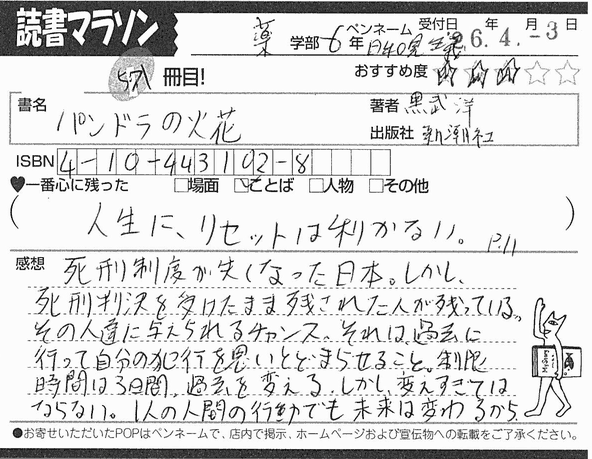 読書マラソン
薬 学部 6年 ペンネーム 受付日 年 月 日
6.4.-3
冊目!
おすすめ度 ★★★☆☆
書名
パンドラの火花
著者 黒武洋
出版社 新潮社
ISBN 4-10-443102-8
♥一番心に残った □場面 ☑ことば □人物 □その他
(人生に、リセットは利かない。 P.11)
感想 死刑制度が失くなった日本。しかし、
死刑判決を受けたまま残された人が残っている。
その人達に与えられるチャンス。それは、過去に
行って自分の犯行を思いとどまらせること。制限
時間は3日間。過去を変える、しかし、変えすぎては
ならない。1人の人間の行動でも未来は変わるから。
●お寄せいただいたPOPはペンネームで、店内で掲示、ホームページおよび宣伝物への転載をご了承ください。